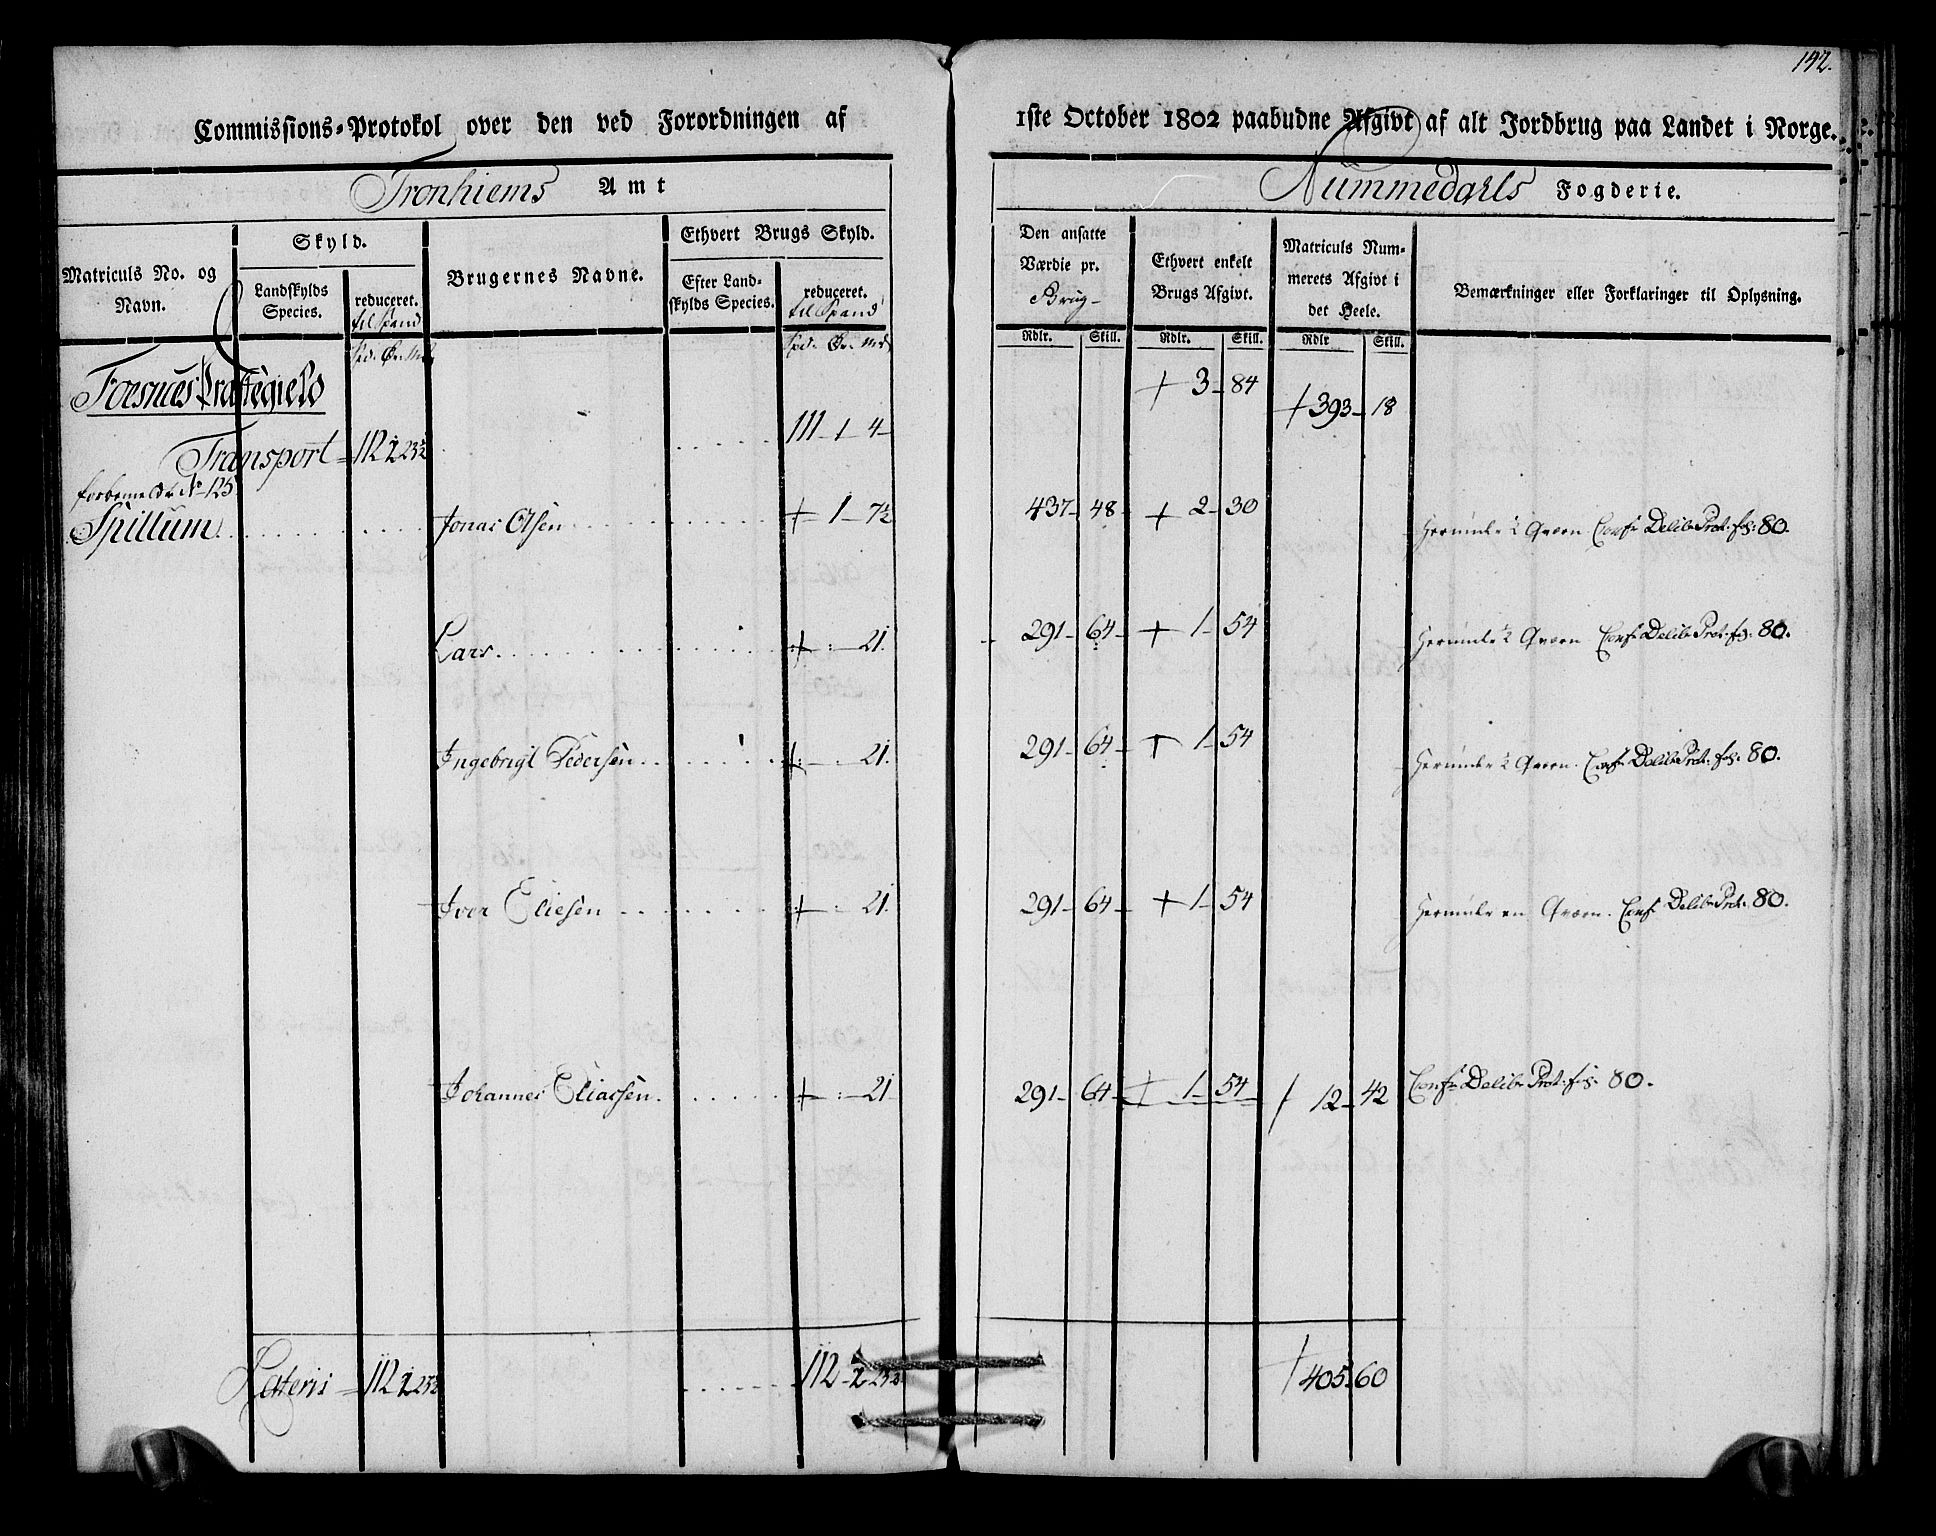 142.
Commissions-Protokol over den ved Forordningen af 1ste October 1802 paabudne Afgivt af alt Jordbrug paa Landet i Norge.
Tronhiems Amt
Nummedahls Fogderie.
Matriculs No. og Navn.
Skyld.
Landskylds Species.
reduceret. til Spand
Brugernes Navne.
Ethvert Brugs Skyld.
Efter Landskylds Species.
reduceret. til Spand
Den ansatte Værdie pr. Brug
Ethvert enkelt Brugs Afgivt.
Matriculs Nummerets Afgivt i det Heele.
Bemærkninger eller Forklaringer til Oplysning.
Spd. Ør. Mk
Spd. Ør. Mk
Rdlr. Skill. Rdlr. Skill. Rdlr Skill.
Foesnes Præstegield
Transport = 112 2 23½ 111 - 1 4 + 3 - 84 + 393 - 18
forbemeldte No 125
Spillum Jonas Olsen + 1 - 7½ 437 - 48 + 2 - 30 Herunder ½ Qværn Conf: Delib: Prot: fol: 80.
Lars + : - 21. 291 - 64 + 1 - 54 Herunder ½ Qværn Conf: Delib: Prot: fol: 80.
Ingebrigt Pedersen + : - 21. 291 - 64 + 1 - 54 Herunder ½ Qværn. Conf: Delib: Prot: fol: 80.
Iver Eliesen + : - 21. 291 - 64 + 1 - 54 Herunder en Qværn. Conf: Delib: Prot: 80.
Johannes Eliassen + : - 21 291 - 64 + 1 - 54 / 12 - 42 Conf: Delib: Prot: fol: 80.
Lateris = 112 2 23½ 112 - 2 23½ / 405. 60